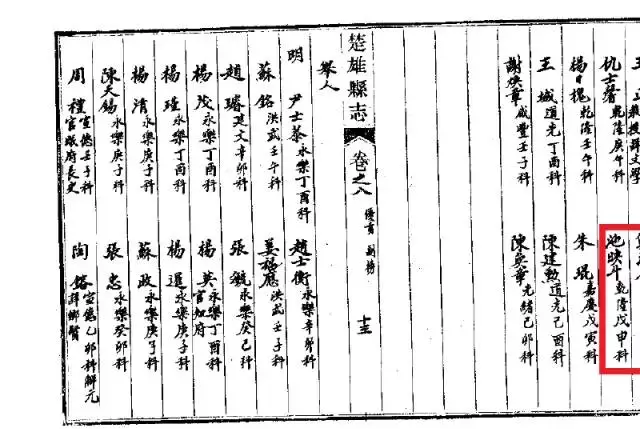 仇士馨乾隆庚午科
池映斗乾隆戊申科
楊日槐乾隆壬午科
朱琨嘉慶戊寅科
王城道光丁酉科
陳建勲道光己酉科
謝煥章咸豐壬子科
陳奐章光緒己卯科
楚雄縣志
卷之八
優貢
副榜
十三
舉人
明
尹士恭永樂丁酉科
趙士衡永樂辛卯科
蘇銘洪武壬午科
姜福應洪武壬子科
趙璿建文辛卯科
張銳永樂癸巳科
楊茂永樂丁酉科
楊英永樂丁酉科官知府
楊瑾永樂丁酉科
楊暹永樂庚子科
楊清永樂庚子科
蘇政永樂庚子科
陳天錫永樂庚子科
張忠永樂癸卯科
周禮宣德壬子科官岷府長史
陶鎔宣德乙卯科解元